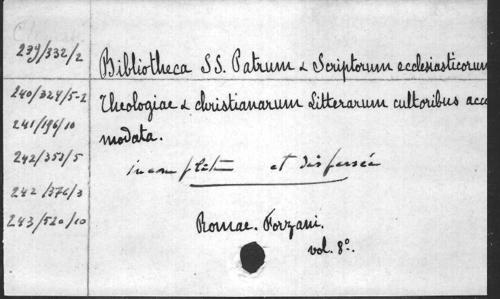 239/332/2
Bibliotheca SS. Patrum & Scriptorum ecclesiasticorum
240/324/5-2
Theologiae & christianarum litterarum cultoribus acco
241/196/10
modata.
242/353/5
incomplète et dispersée
242/376/3
243/520/10
Romae. Forzani.
vol. 8º.